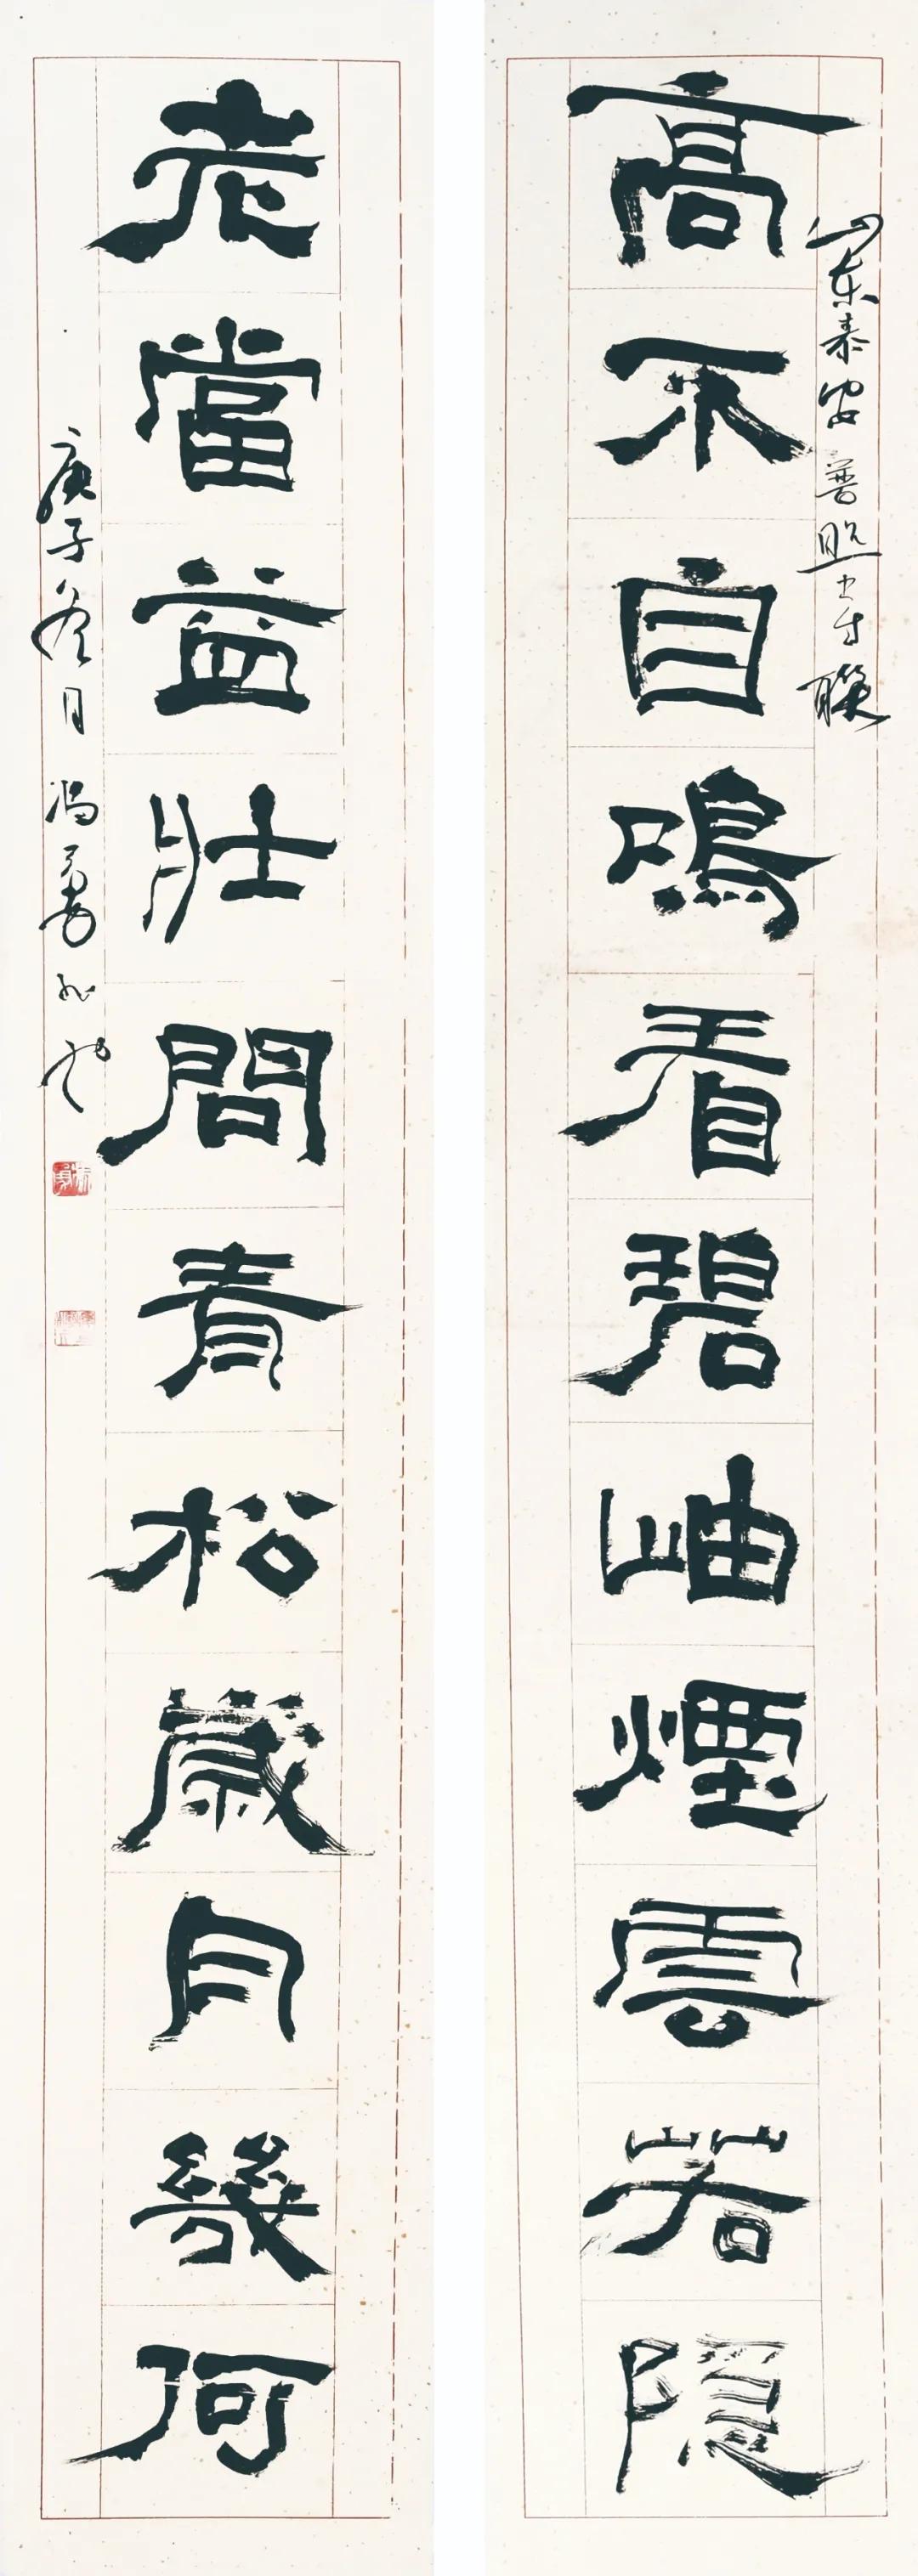 山东泰安普照寺联
高不自鳴看碧岫煙雲若隱
老當益壯問青松歲月幾何
庚子冬日冯勇